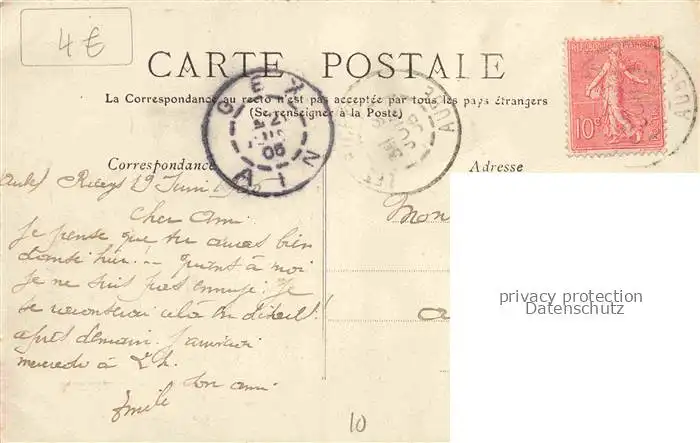 4 €
CARTE POSTALE
La Correspondance au recto n'est pas acceptée par tous les pays étrangers
(Se renseigner à la Poste)
Correspondance
Adresse
REPUBLIQUE FRANÇAISE
10c
GEX
AIN
05
AUBE
LES RICEYS
AUBE
Riceys 19 Juin
Cher Ami
Je pense que tu auras bien
dansé hier! — quant à moi
je ne suis pas ennuyé! Je
te raconterai cela en détail!
après demain. J'arriverai
mercredi à 2h.
ton ami
Emile
Mon
10
privacy protection
Datenschutz